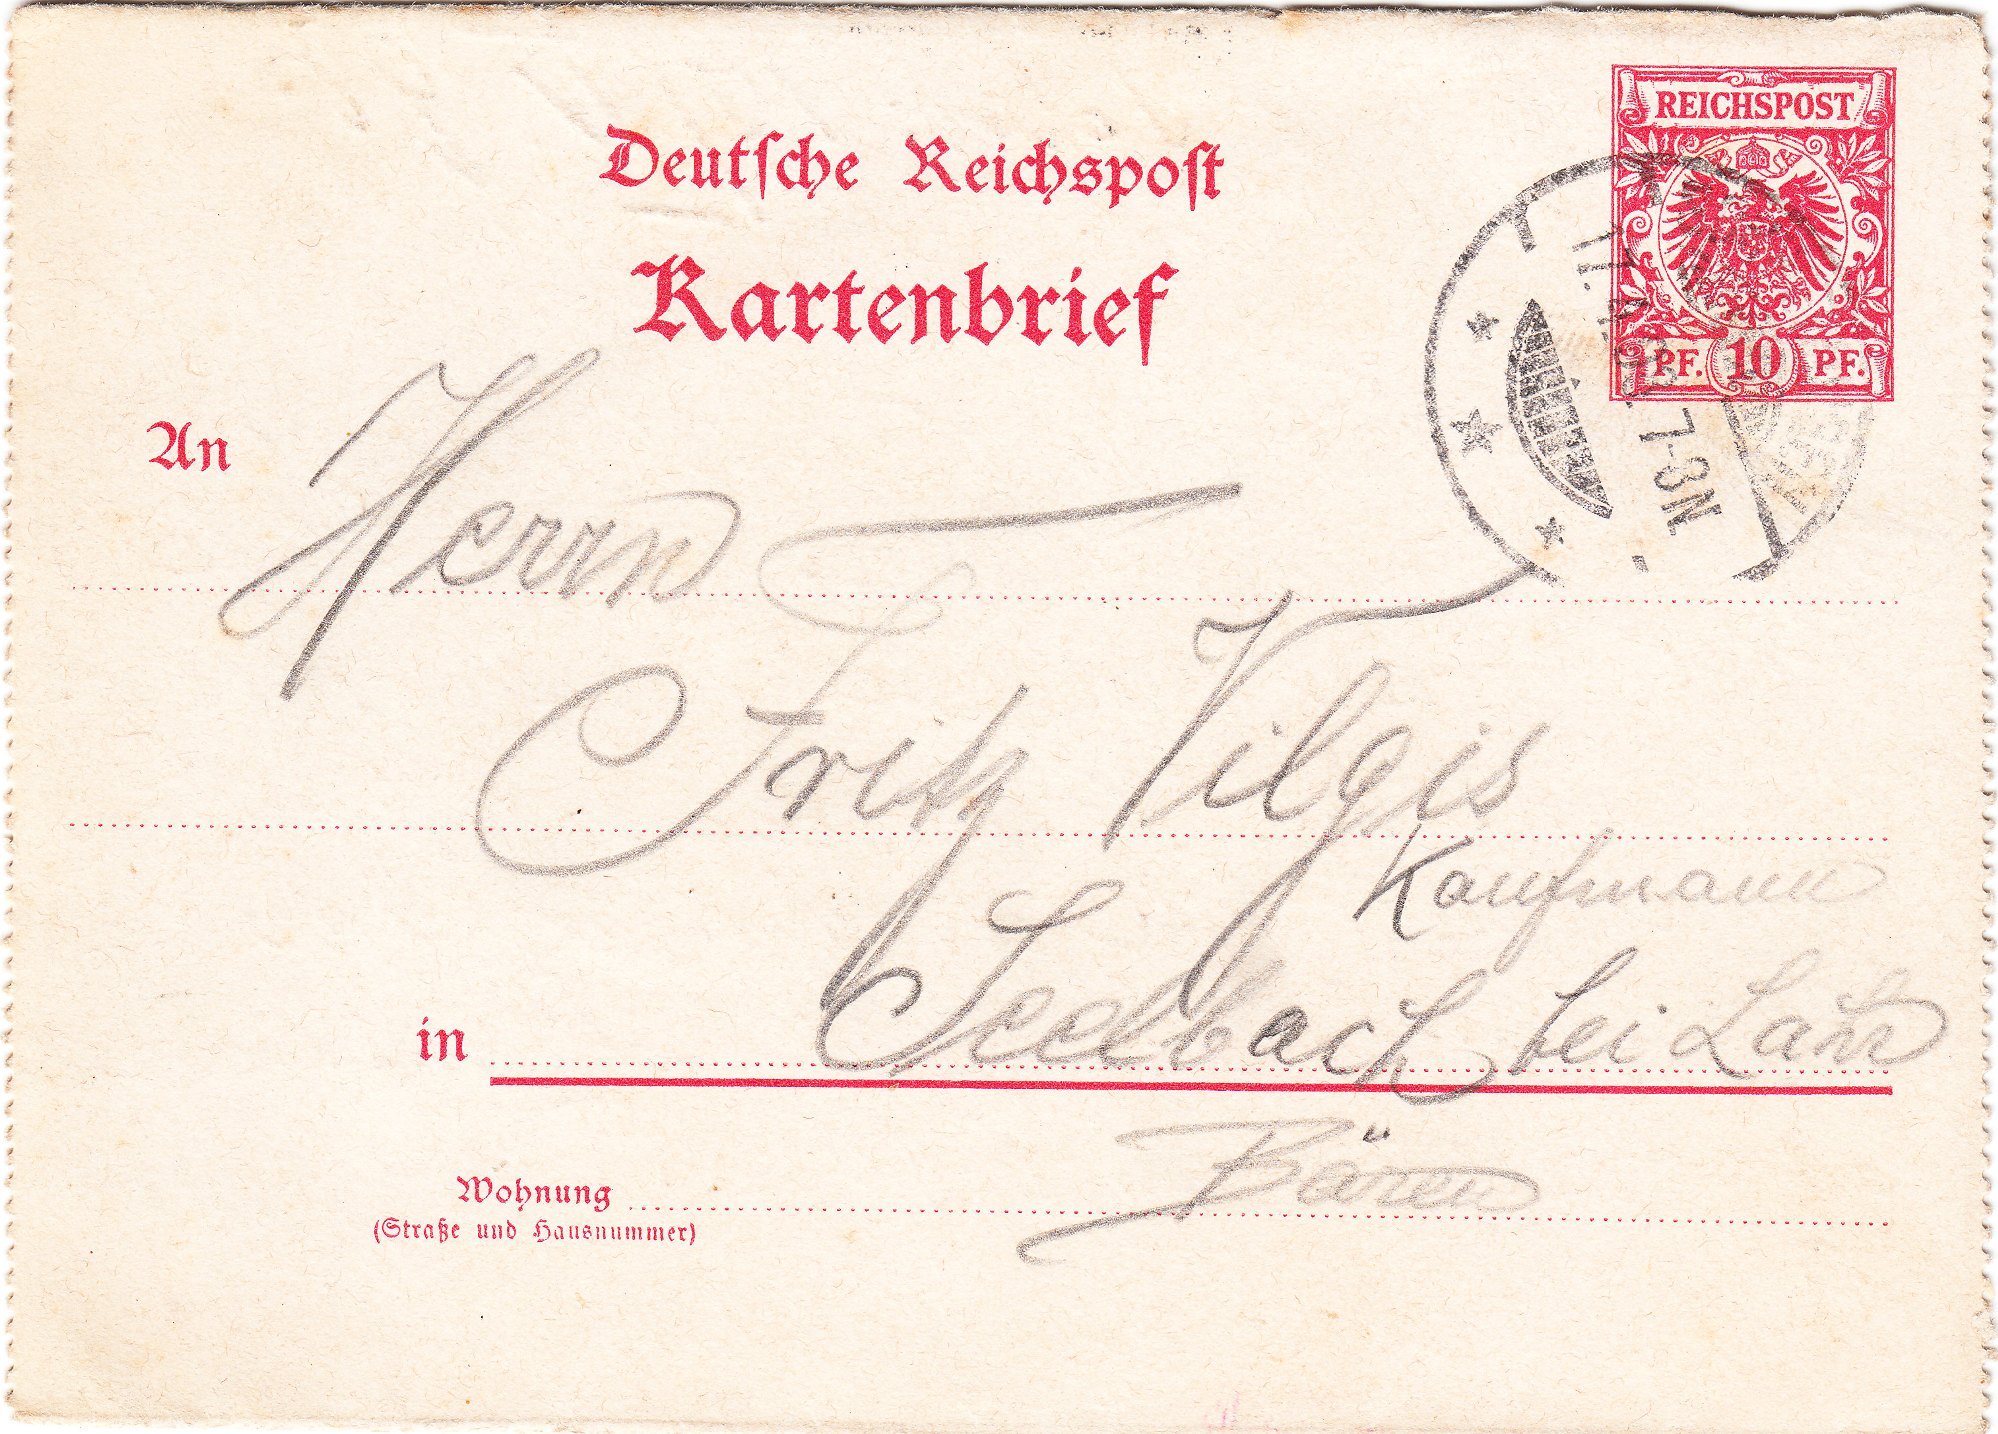 REICHSPOST
Deutsche Reichspost
Kartenbrief
PF. 10 PF.
7-8N.
An Herrn
Fritz Vilgis
Kaufmann
in Seelbach bei Lahr
Bären
Wohnung
(Straße und Hausnummer)